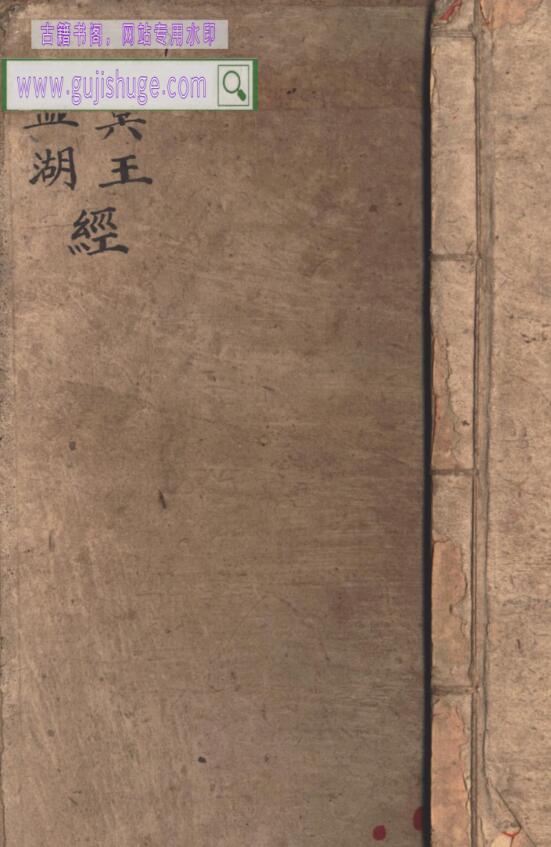 古籍书阁，网站专用水印
www.gujishuge.com
冥王
血湖
經